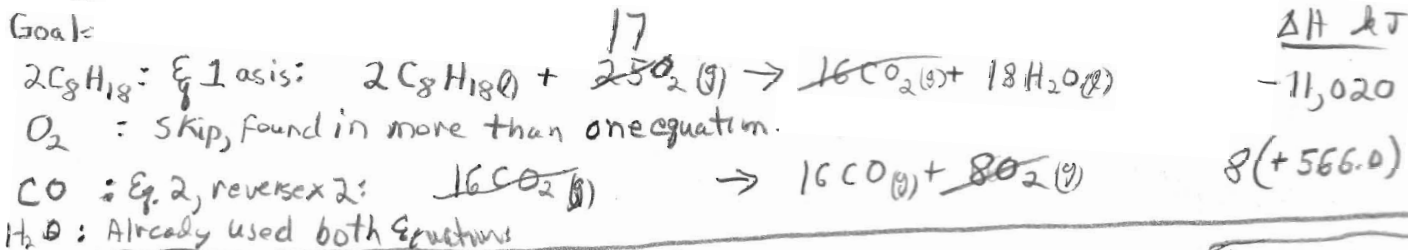 Goal:
17
ΔH kJ
2C8H18: Eq 1 as is: 2C8H18(l) + 25O2(g) → 16CO2(g) + 18H2O(l) -11,020
O2 : Skip, found in more than one equation.
CO : Eq. 2, reverse x 2: 16CO2(g) → 16CO(g) + 8O2(g) 8(+566.0)
H2O : Already used both Equations